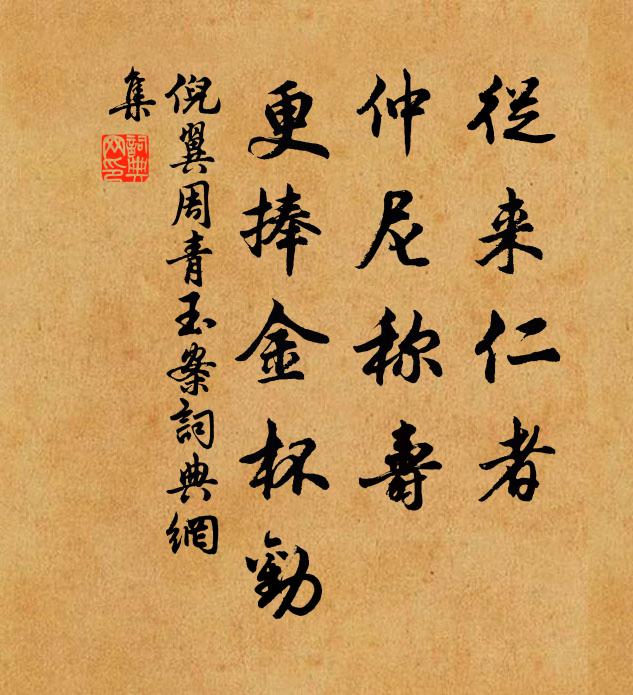 從来仁者
仲尼称壽
更捧金杯勸
倪翼周青玉案詞典網
集
詞典
网印